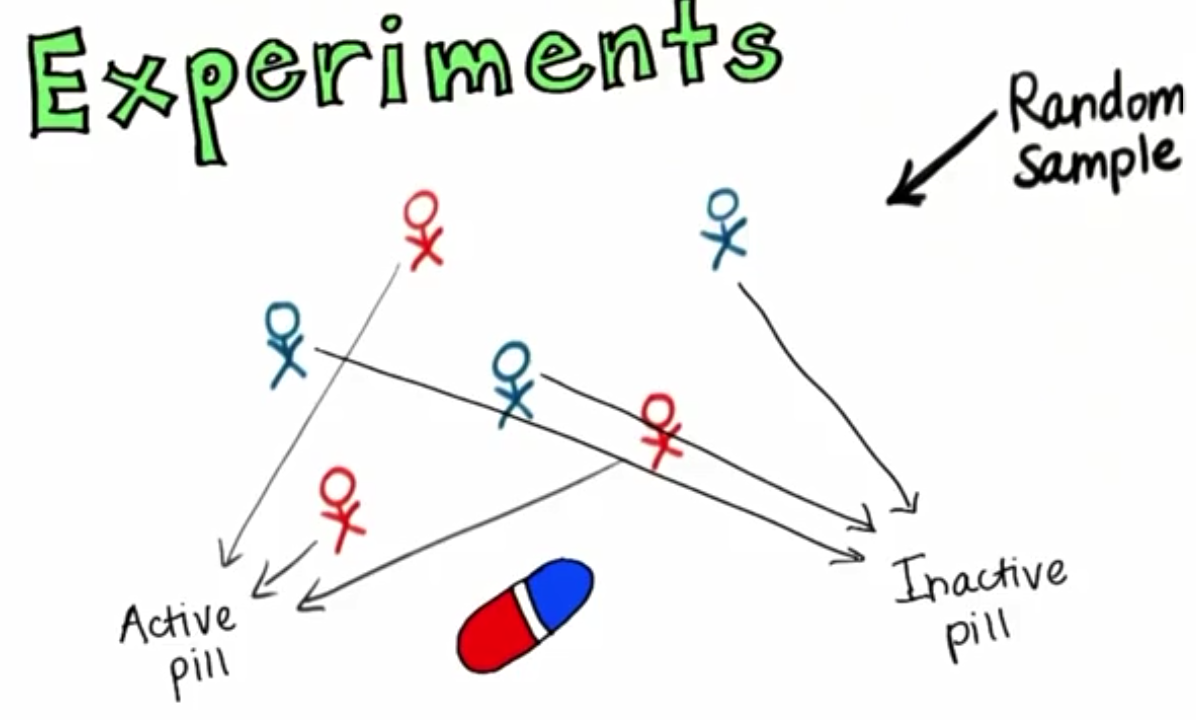 Experiments
Random
sample
Active
pill
Inactive
pill